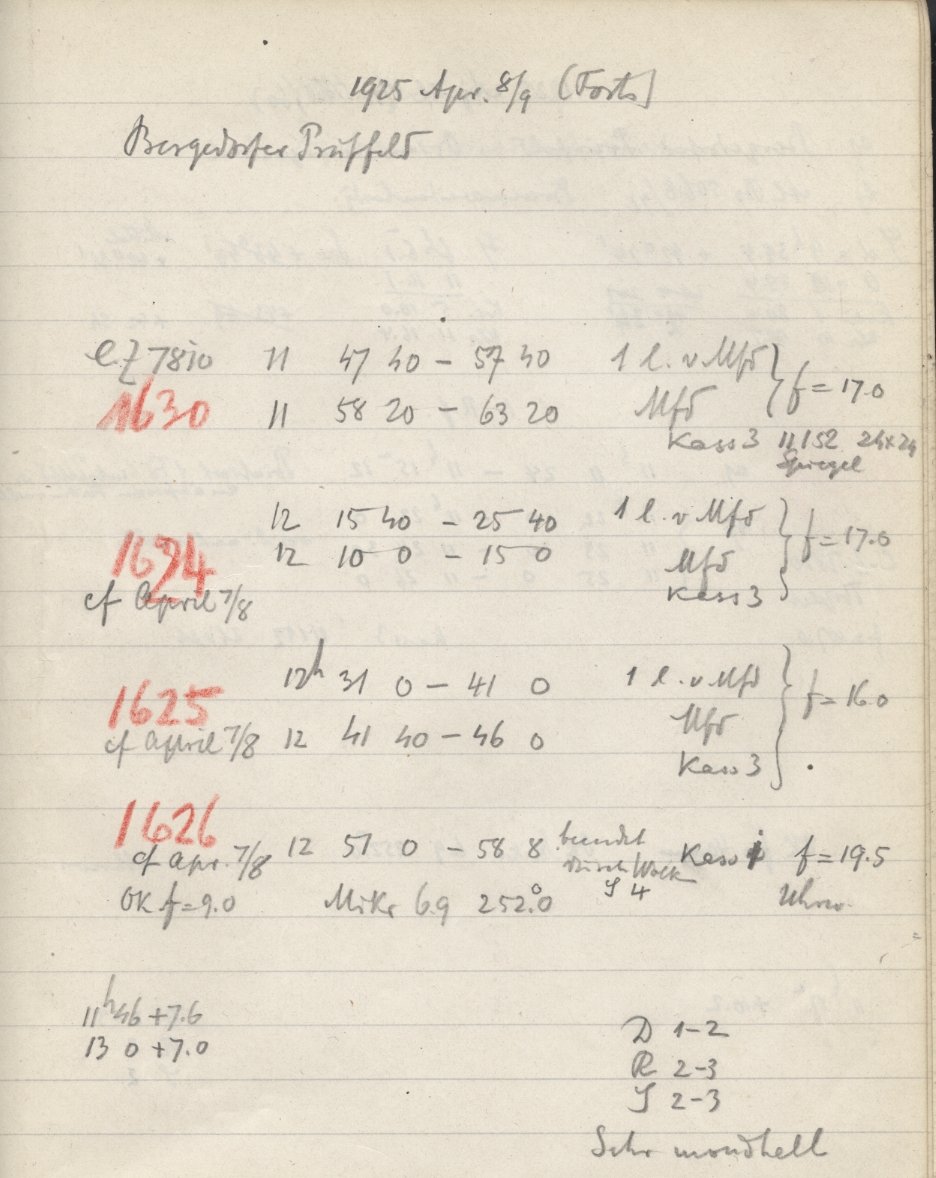 1925 Apr. 8/9 (Forts)
Bergedorfer Prüffeld
EZ 7810 11 47 40 – 57 40 1 l. v Mfd
1630 11 58 20 – 63 20 Mfd f = 17.0
Kass 3 11,152 24×24
Spiegel
12 15 40 – 25 40 1 l. v Mfd
1624 12 10 0 – 15 0 Mfd f = 17.0
cf April 7/8 Kass 3
12h 31 0 – 41 0 1 l. v Mfd
1625 f = 16.0
cf April 7/8 12 41 40 – 46 0 Mfd
Kass 3
1626
cf Apr. 7/8 12 51 0 – 58 8 beendet Kass f = 19.5
durch Wolk
S 4
OK f = 9.0 Mikr 6.9 252.°0 Uhrw.
11h 46 +7.6
13 0 +7.0
D 1–2
R 2–3
S 2–3
Sehr mondhell